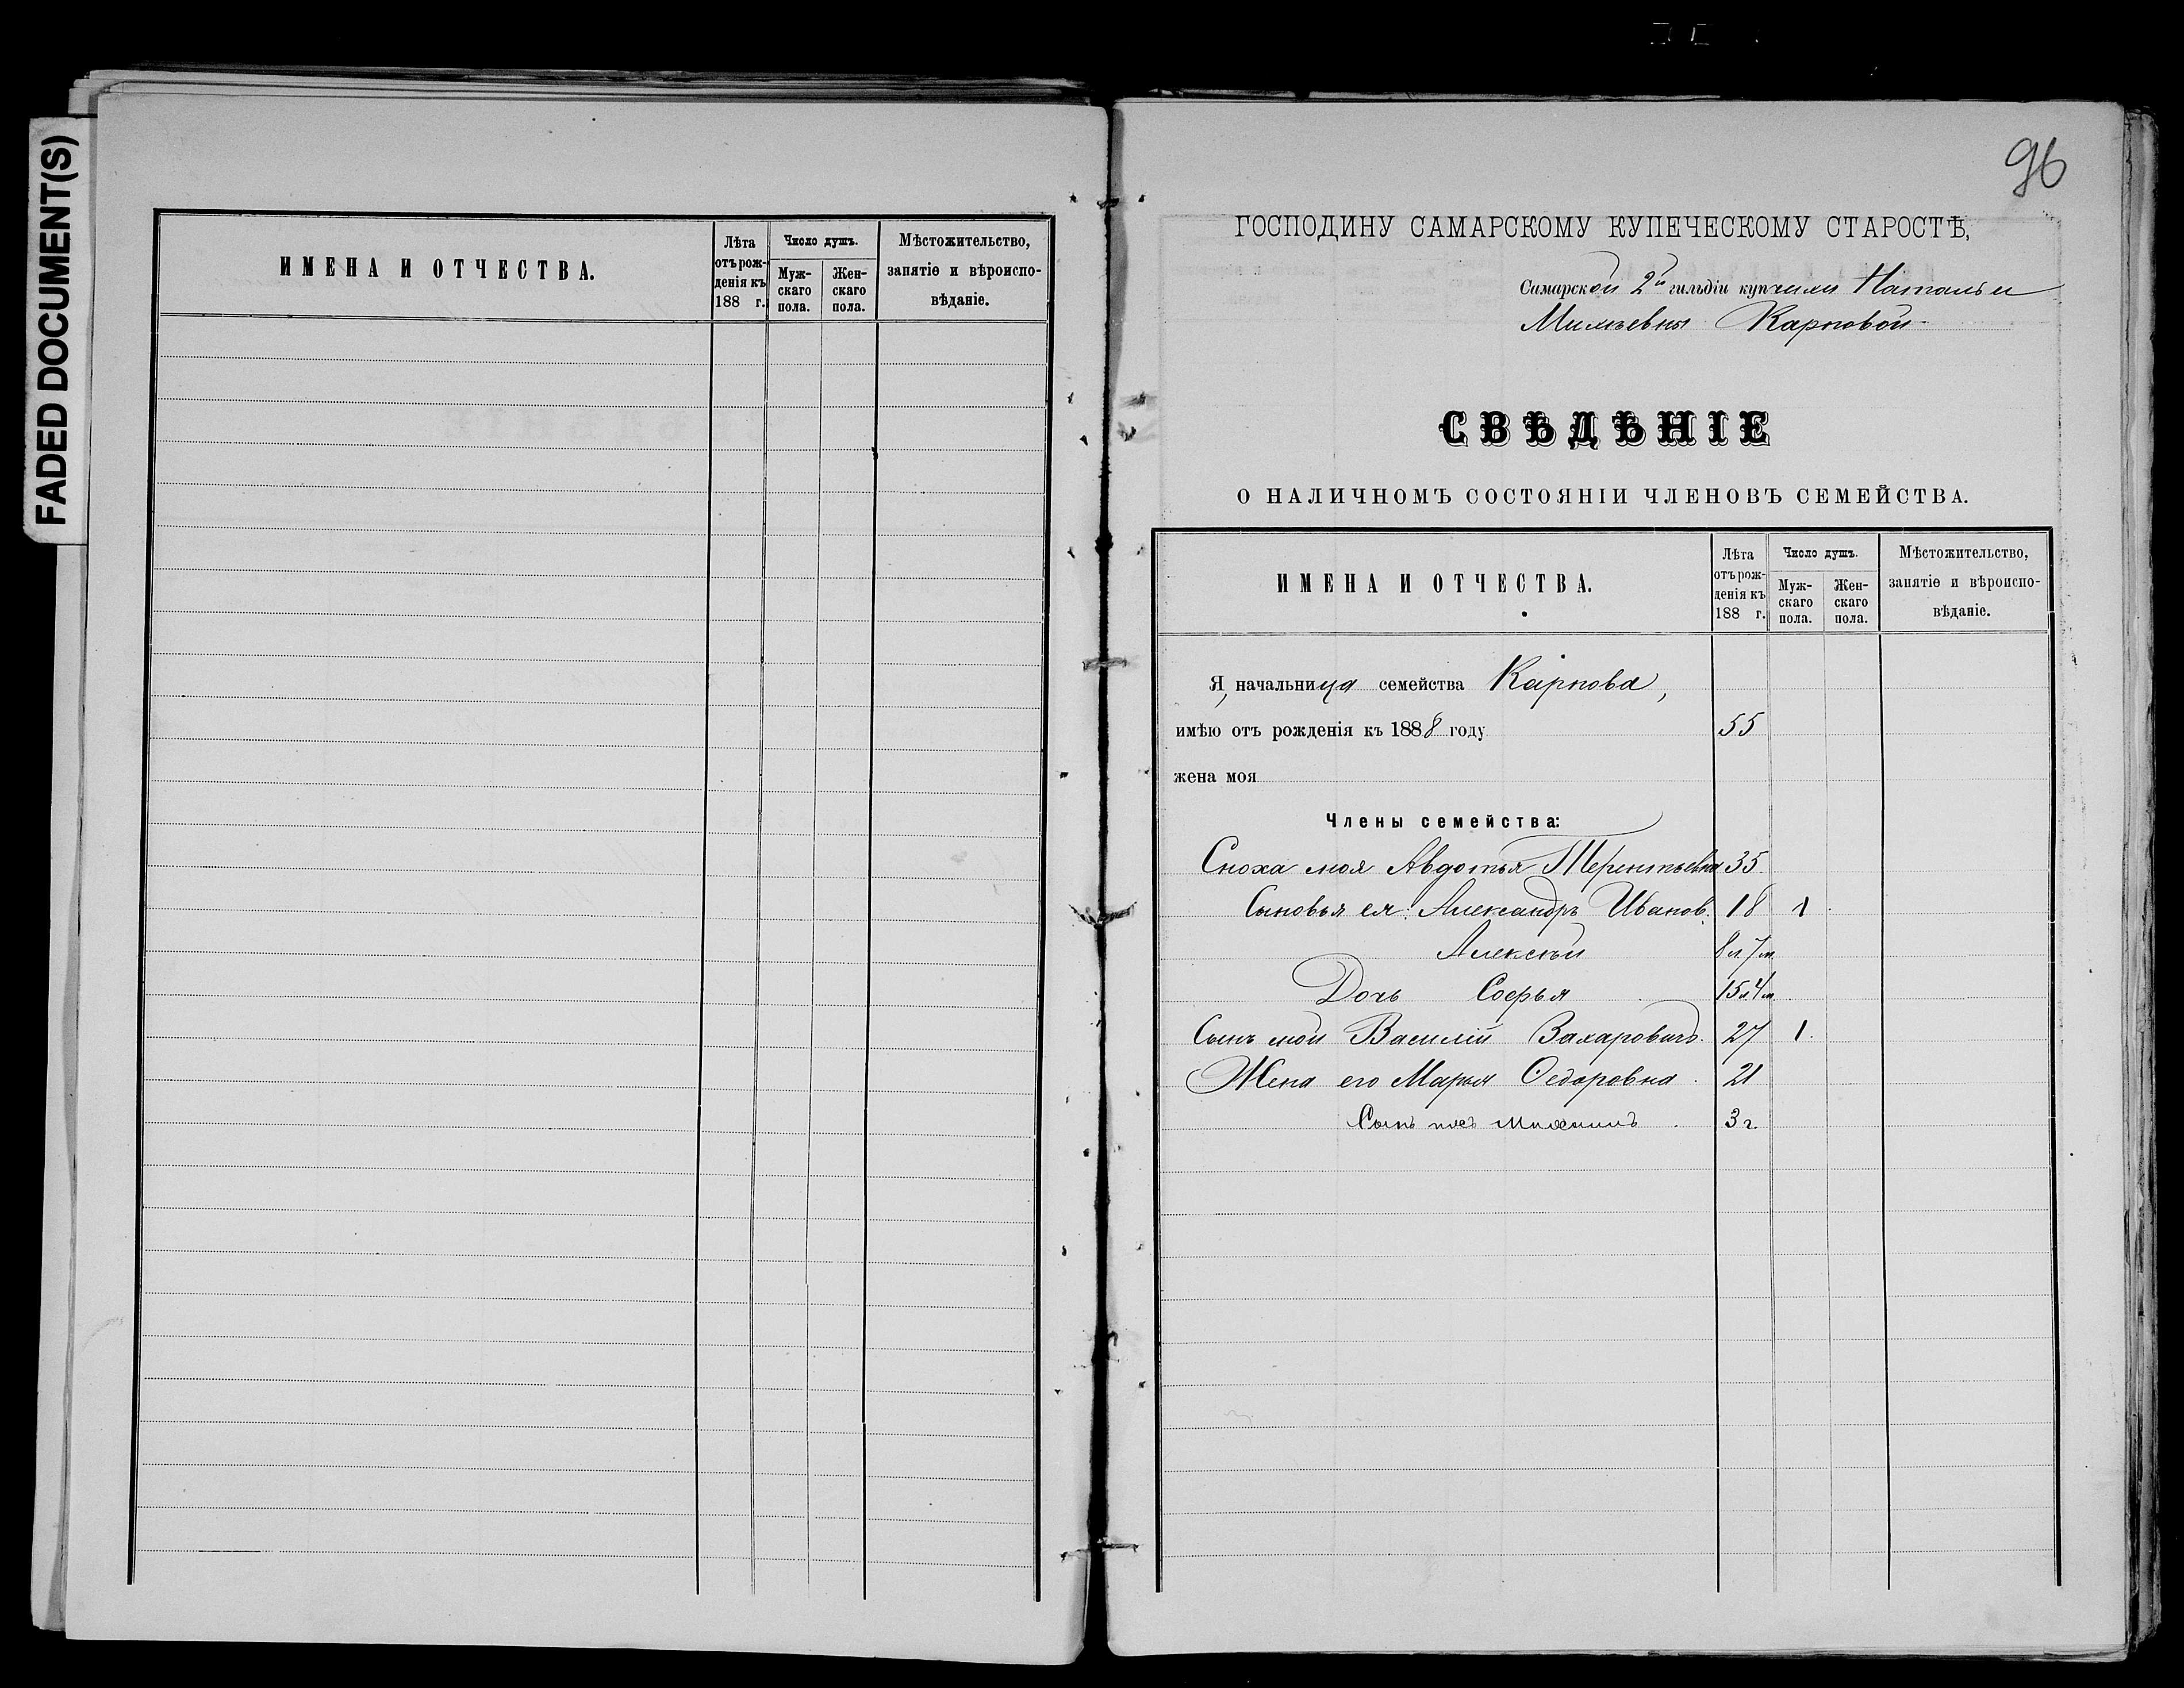 FADED DOCUMENT(S)
ИМЕНА И ОТЧЕСТВА.
Лѣта отъ рож-денія къ 188 г.
Число душъ.
Муж-скаго пола.
Жен-скаго пола.
Мѣстожительство, занятіе и вѣроиспо-вѣданіе.
96
ГОСПОДИНУ САМАРСКОМУ КУПЕЧЕСКОМУ СТАРОСТѢ,
Самарской 2й гильдіи купчихи Натальи
Карповой
СВѢДѢНІЕ
О НАЛИЧНОМЪ СОСТОЯНІИ ЧЛЕНОВЪ СЕМЕЙСТВА.
ИМЕНА И ОТЧЕСТВА.
Лѣта отъ рож-денія къ 188 г.
Число душъ.
Муж-скаго пола.
Жен-скаго пола.
Мѣстожительство, занятіе и вѣроиспо-вѣданіе.
Я, начальница семейства Карпова,
имѣю отъ рожденія къ 1888 году 55
жена моя
Члены семейства:
Сноха моя Авдотья Терентьевна 35.
Сыновья ея: Александръ Иванов. 18 1
Алексѣй 8 л. 7 м.
Дочь Софья 15 л. 4 м.
Сынъ мой Василій Захаровичъ. 27 1.
Жена его Марья Ѳедоровна. 21
Сынъ ихъ Михаилъ. 3 г.